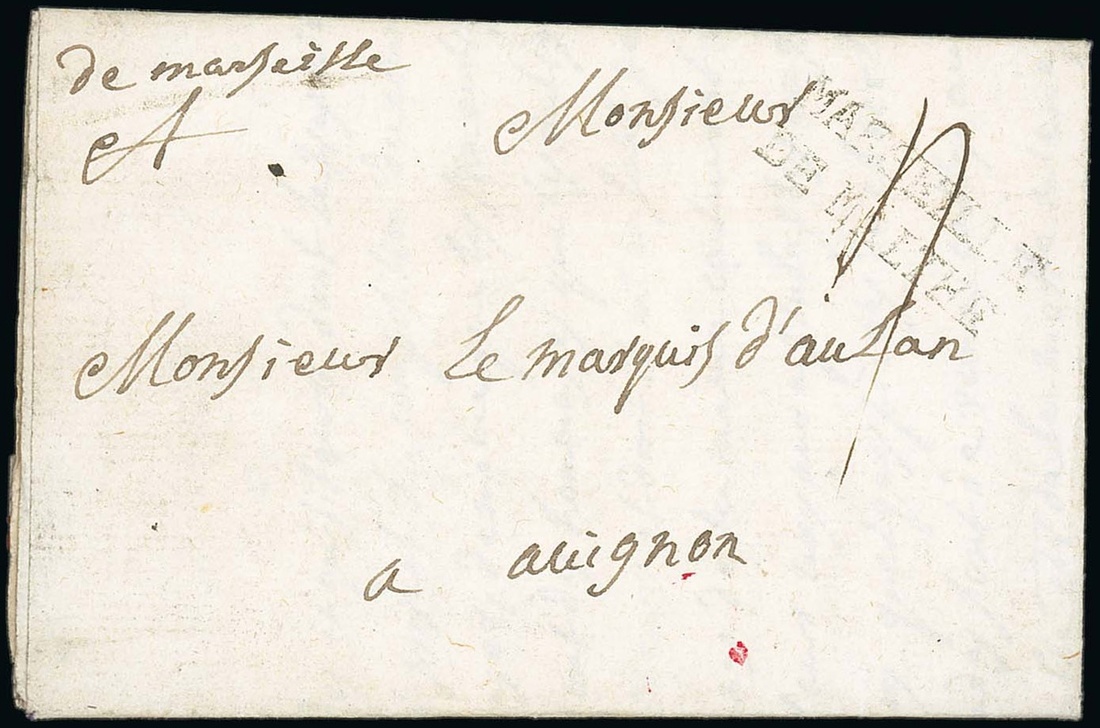 de marseille
A Monsieur
MARSEILLE
DE MALTHE
Monsieur Le marquis d'aulan
a auignon